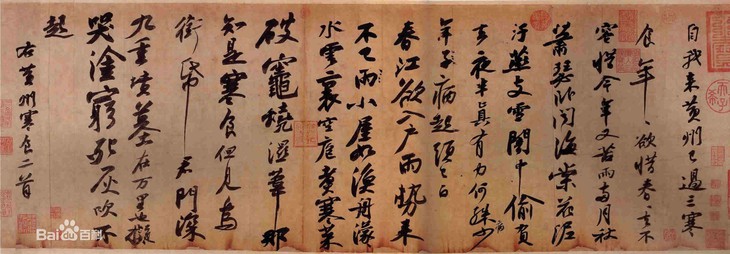 自我来黄州已過三寒
食年〻欲惜春〻去不
容惜今年又苦雨兩月秋
蕭瑟卧聞海棠花泥
汙燕支雪闇中偷負
去夜半真有力何殊病少
年子病起頭已白
春江欲入户雨勢来
不已雨小屋如漁舟濛〻
水雲裏空庖煮寒菜
破竈燒濕葦那
知是寒食但見烏
銜帋君門深
九重墳墓在万里也擬
哭塗窮死灰吹不
起
右黄州寒食二首
Bai 百科